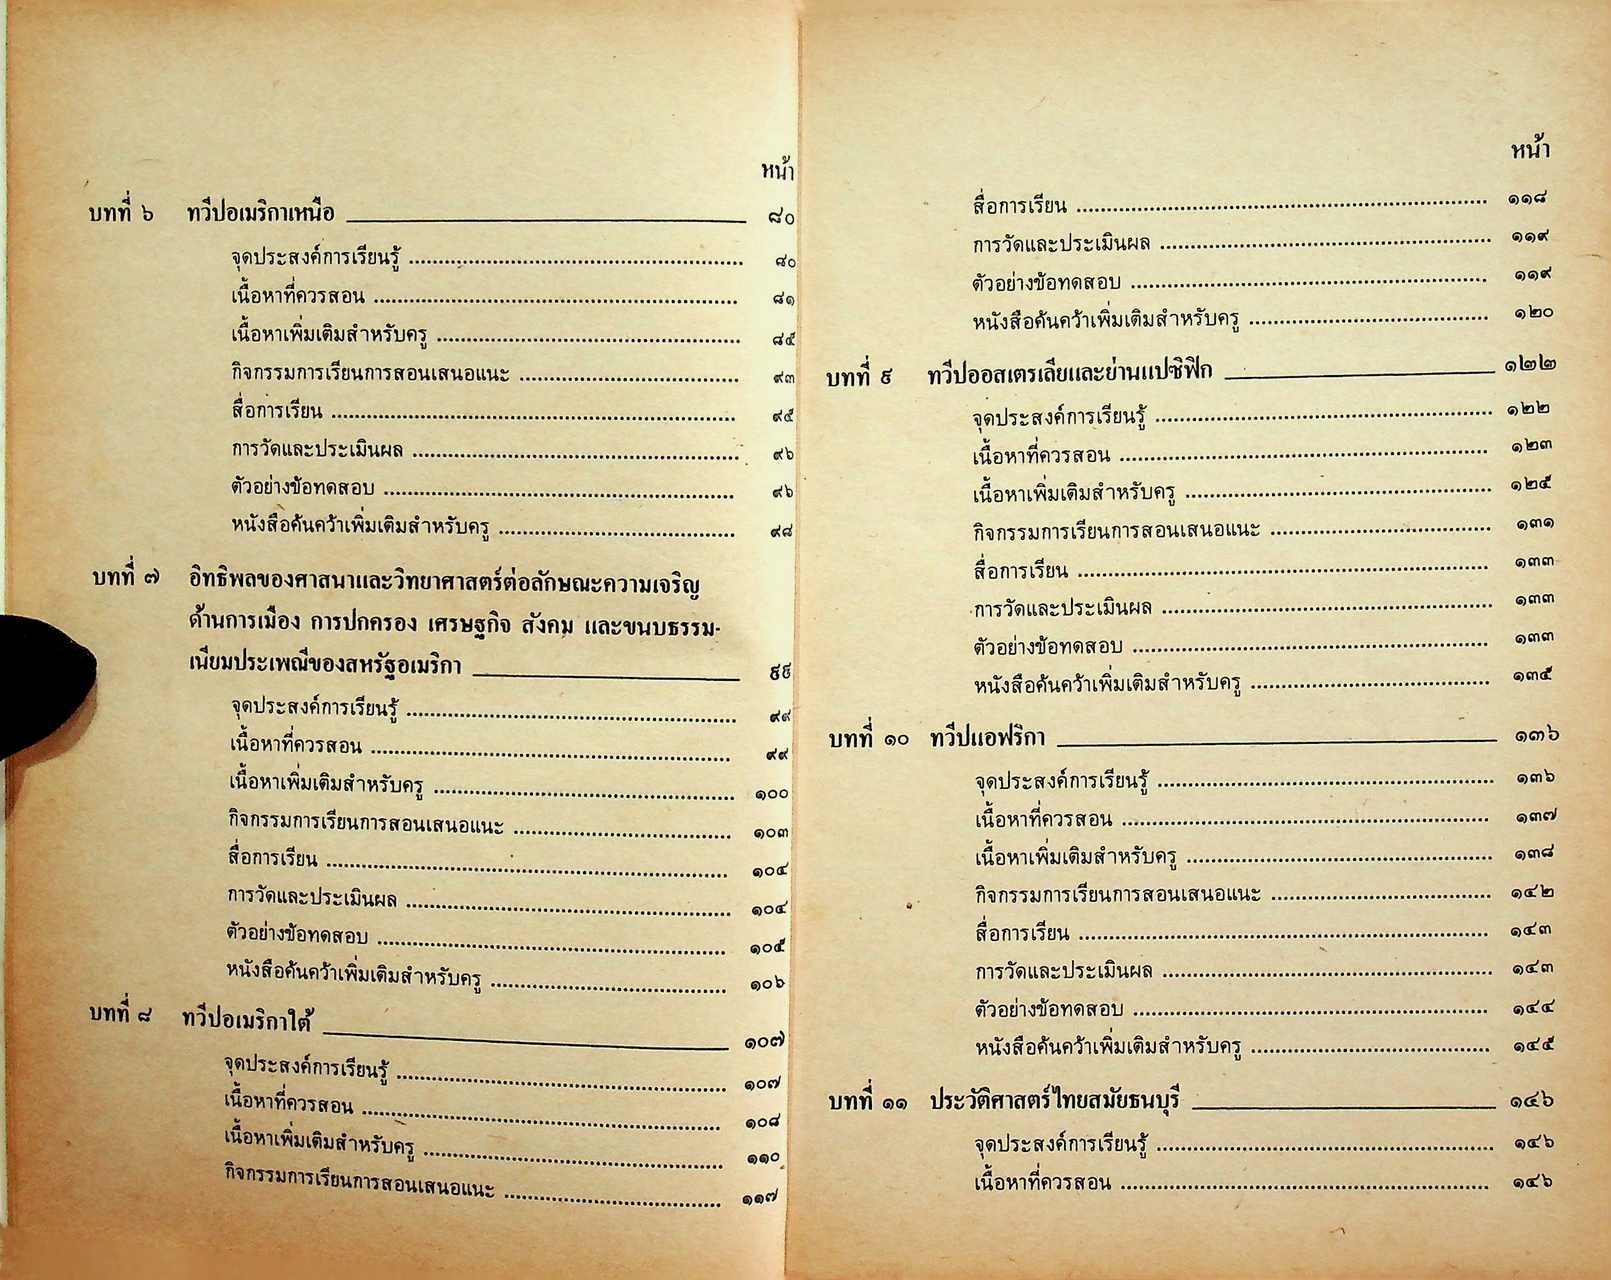 หน้า
บทที่ ๖ ทวีปอเมริกาเหนือ ๘๐
จุดประสงค์การเรียนรู้ ๘๐
เนื้อหาที่ควรสอน ๘๑
เนื้อหาเพิ่มเติมสำหรับครู ๘๕
กิจกรรมการเรียนการสอนเสนอแนะ ๙๓
สื่อการเรียน ๙๕
การวัดและประเมินผล ๙๖
ตัวอย่างข้อทดสอบ ๙๖
หนังสือค้นคว้าเพิ่มเติมสำหรับครู ๙๘
บทที่ ๗ อิทธิพลของศาสนาและวิทยาศาสตร์ต่อลักษณะความเจริญ
ด้านการเมือง การปกครอง เศรษฐกิจ สังคม และขนบธรรม-
เนียมประเพณีของสหรัฐอเมริกา ๙๙
จุดประสงค์การเรียนรู้ ๙๙
เนื้อหาที่ควรสอน ๙๙
เนื้อหาเพิ่มเติมสำหรับครู ๑๐๐
กิจกรรมการเรียนการสอนเสนอแนะ ๑๐๓
สื่อการเรียน ๑๐๔
การวัดและประเมินผล ๑๐๔
ตัวอย่างข้อทดสอบ ๑๐๕
หนังสือค้นคว้าเพิ่มเติมสำหรับครู ๑๐๖
บทที่ ๘ ทวีปอเมริกาใต้ ๑๐๗
จุดประสงค์การเรียนรู้ ๑๐๗
เนื้อหาที่ควรสอน ๑๐๘
เนื้อหาเพิ่มเติมสำหรับครู ๑๑๐
กิจกรรมการเรียนการสอนเสนอแนะ ๑๑๗
หน้า
สื่อการเรียน ๑๑๘
การวัดและประเมินผล ๑๑๙
ตัวอย่างข้อทดสอบ ๑๑๙
หนังสือค้นคว้าเพิ่มเติมสำหรับครู ๑๒๐
บทที่ ๙ ทวีปออสเตรเลียและย่านแปซิฟิก ๑๒๒
จุดประสงค์การเรียนรู้ ๑๒๒
เนื้อหาที่ควรสอน ๑๒๓
เนื้อหาเพิ่มเติมสำหรับครู ๑๒๕
กิจกรรมการเรียนการสอนเสนอแนะ ๑๓๑
สื่อการเรียน ๑๓๓
การวัดและประเมินผล ๑๓๓
ตัวอย่างข้อทดสอบ ๑๓๓
หนังสือค้นคว้าเพิ่มเติมสำหรับครู ๑๓๕
บทที่ ๑๐ ทวีปแอฟริกา ๑๓๖
จุดประสงค์การเรียนรู้ ๑๓๖
เนื้อหาที่ควรสอน ๑๓๗
เนื้อหาเพิ่มเติมสำหรับครู ๑๓๘
กิจกรรมการเรียนการสอนเสนอแนะ ๑๔๒
สื่อการเรียน ๑๔๓
การวัดและประเมินผล ๑๔๓
ตัวอย่างข้อทดสอบ ๑๔๔
หนังสือค้นคว้าเพิ่มเติมสำหรับครู ๑๔๕
บทที่ ๑๑ ประวัติศาสตร์ไทยสมัยธนบุรี ๑๔๖
จุดประสงค์การเรียนรู้ ๑๔๖
เนื้อหาที่ควรสอน ๑๔๖